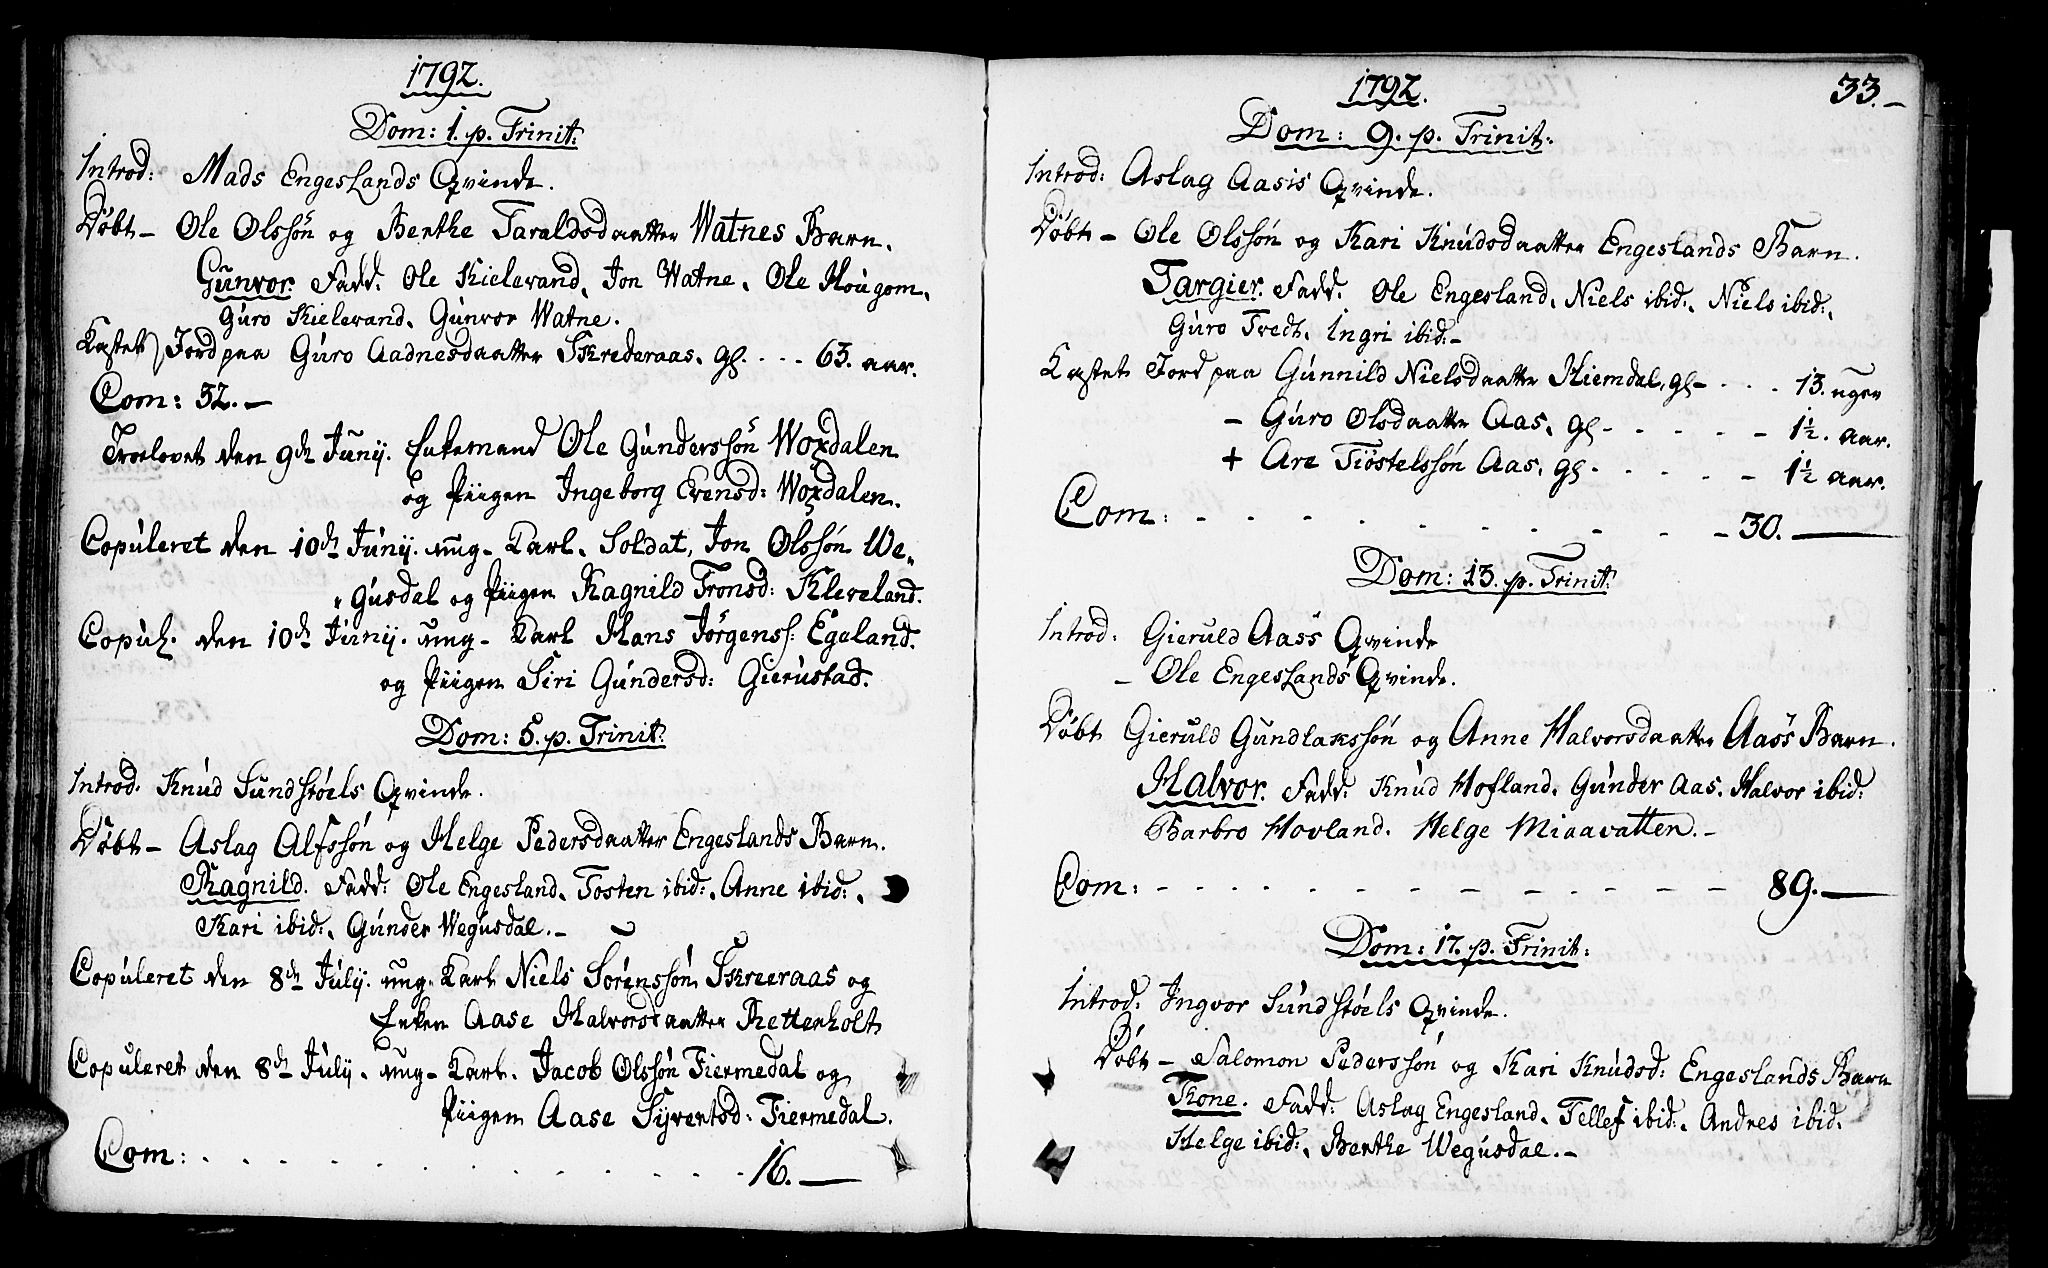 1792.
Dom: 1. p. Trinit:
Introd: Mads Engeslands Qvinde.
Döbt - Ole Olssön og Berthe Taraldsdaatter Watnes Barn.
Gunvor. Fadd: Ole Kielevand, Jon Watne, Ole Hougom,
Guro Kielevand, Gunvor Watne.
Kastet Jord paa Guro Aadnesdaatter Skrederaas, gl. . . . 63. aar.
Com: 32. -
Troelovet den 9de Junij. Enkemand Ole Gunderssön Woxdalen
og Piigen Ingeborg Evensd: Woxdalen.
Copuleret den 10de Junij. ung- Karl. Soldat, Jon Olssön We„
„gusdal og Piigen Ragnild Tronsd: Kleveland.
Copul. den 10de Junij. ung- Karl Hans Jörgens: Egeland.
og Piigen Siri Gundersd: Gierustad.
Dom: 5. p. Trinit:
Introd: Knud Sundstöels Qvinde.
Döbt - Aslag Alfssön og Helge Pedersdaatter Engeslands Barn.
Ragnild. Fadd: Ole Engesland, Tosten ibid:, Anne ibid:,
Kari ibid:, Gunder Wegusdal. -
Copuleret den 8de Julij. ung- Karl Niels Sörenssön Skreeraas og
Enken Aase Halvorsdaatter Rettenholt
Copuleret den 8de Julij. ung- Karl. Jacob Olssön Fiermedal og
Piigen Aase Syvertsd: Fiermedal.
Com: . . . . . . . . . . . . 16. -
1792. 33. -
Dom: 9. p. Trinit:
Introd: Aslag Aasis Qvinde.
Döbt - Ole Olssön og Kari Knudsdaatter Engeslands Barn.
Targier. Fadd: Ole Engesland, Niels ibid:, Niels ibid:,
Guro Tvedt, Ingri ibid: -
Kastet Jord paa Gunnild Nielsdaatter Kiemdal, gl - . . . 13. uger
- Guro Olsdaatter Aas, gl - - - - - - 1½. aar.
+ Are Tiöstelssön Aas, gl - . . - . - 1½ aar.
Com: - - - - - - - - - - 30. -
Dom: 13. p. Trinit:
Introd: Gieruld Aass Qvinde
- Ole Engeslands Qvinde.
Döbt Gieruld Gundlakssön og Anne Halvorsdaatter Aass Barn.
Halvor. Fadd: Knud Hofland, Gunder Aas. Halvor ibid:
Barbro Hovland. Helge Miaavatten. -
Com: - - - - - - - - - - - - - 89. -
Dom: 17. p. Trinit:
Introd: Ingvor Sundstöels Qvinde.
Döbt - Salomon Pederssön og Kari Knudsd: Engeslands Barn
Tone. Fadd: Aslag Engesland, Tellef ibid:, Andres ibid.
Helge ibid:, Berthe Wegusdal. -